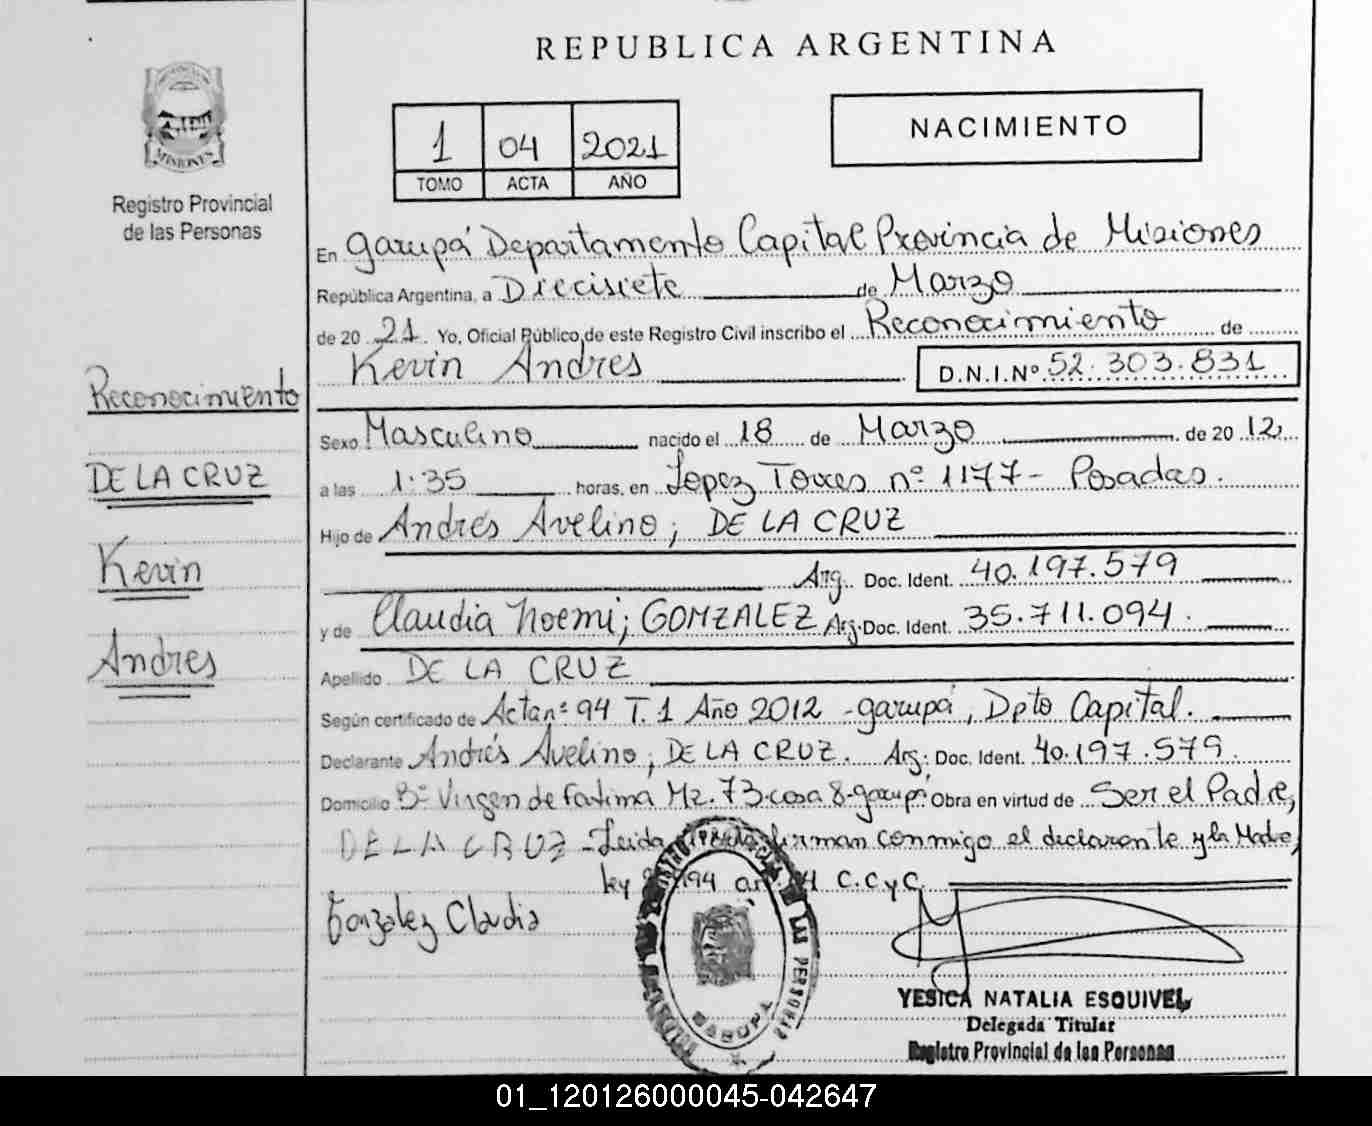 REPUBLICA ARGENTINA
NACIMIENTO
1 04 2021
TOMO ACTA AÑO
MISIONES
Registro Provincial
de las Personas
En Garupá Departamento Capital Provincia de Misiones
República Argentina, a Diecisiete de Marzo
de 20 21. Yo, Oficial Público de este Registro Civil inscribo el Reconocimiento de
Kevin Andres D.N.I.Nº 52.303.831
Reconocimiento
DE LA CRUZ
Kevin
Andres
Sexo Masculino nacido el 18 de Marzo de 20 12,
a las 1:35 horas, en Lopez Torres nº 1177- Posadas.
Hijo de Andrés Avelino; DE LA CRUZ
Arg. Doc. Ident. 40.197.579
y de Claudia Noemi; GONZALEZ Arg. Doc. Ident. 35.711.094.
Apellido DE LA CRUZ
Según certificado de Acta nº 94 T.1 Año 2012 -garupá, Dpto Capital.
Declarante Andrés Avelino; DE LA CRUZ. Arg. Doc. Ident. 40.197.579.
Domicilio Bº Virgen de Fatima Mz. 73 casa 8-garupá Obra en virtud de Ser el Padre,
DE LA CRUZ -Leida firman conmigo el declarante y la Madre,
ley C.C y C.
Gonzalez Claudia
GARUPA
YESICA NATALIA ESQUIVEL
Delegada Titular
Registro Provincial de las Personas
01_120126000045-042647